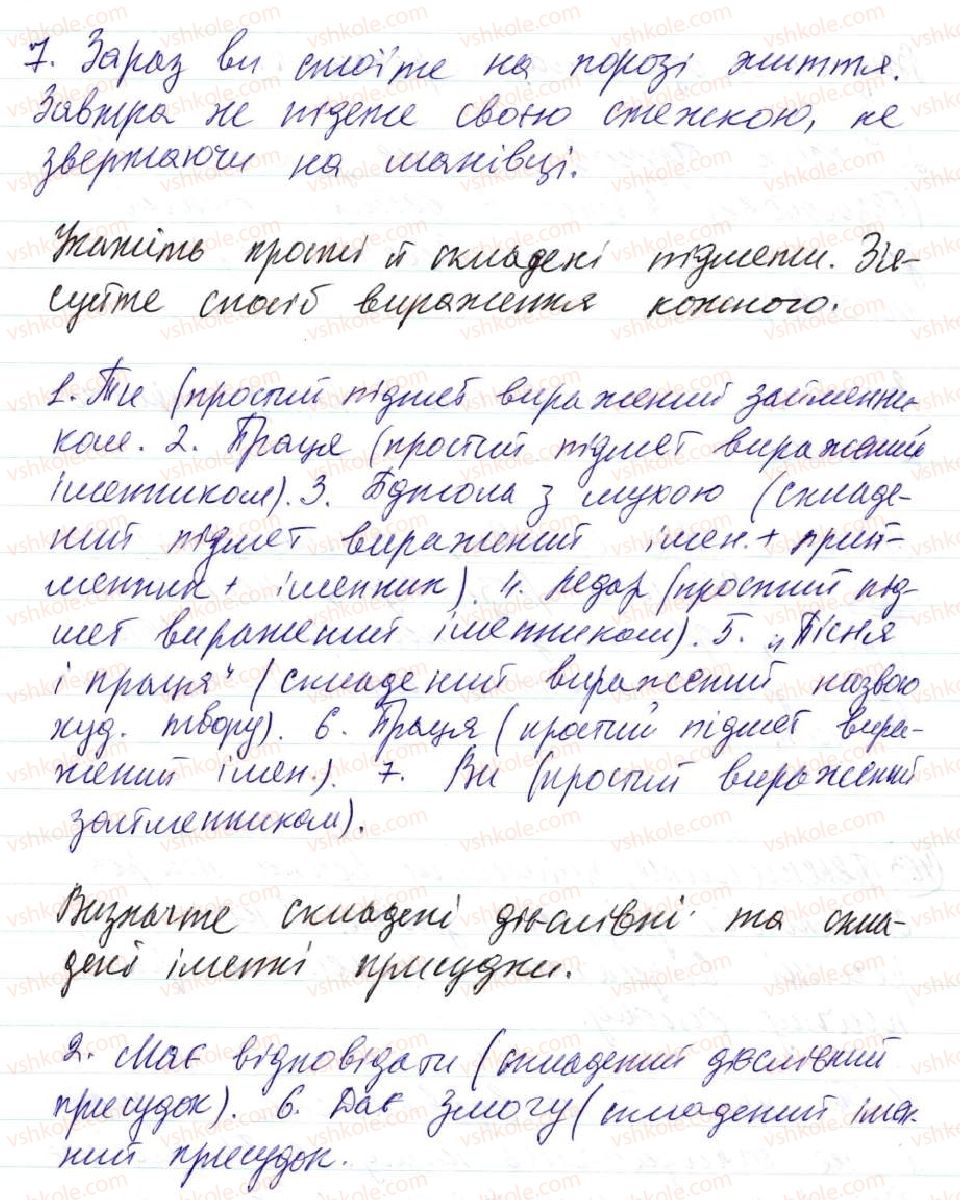 7. Зараз ви стоїте на порозі життя.
Завтра же підете своєю стежкою, не
звертаючи на манівці.
Укажіть прості й складені підмети. З'я-
суйте спосіб вираження кожного.
1. Ти (простий підмет виражений займенни-
ком. 2. Праця (простий підмет виражений
іменником). 3. Бджола з мухою (складе-
ний підмет виражений імен. + прий-
менник + іменник). 4. Кедар (простий під-
мет виражений іменником). 5. „Пісня
і праця" (складений виражений назвою
худ. твору). 6. Праця (простий підмет вира-
жений імен.). 7. Ви (простий виражений
займенником).
Визначте складені дієслівні та скла-
дені іменні присудки.
2. Має відповідати (складений дієслівний
присудок). 6. Дає змогу (складений імен-
ний присудок.